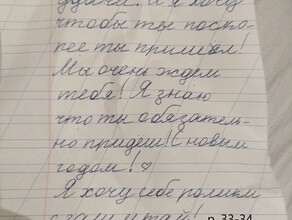 удачи. И я хочу
чтобы ты поско-
рее ты пришёл!
Мы очень ждем
тебя! Я знаю
что ты обязатель-
но придёш! С новым
годом! ♡
Я хочу себе ролики
р. 33-34